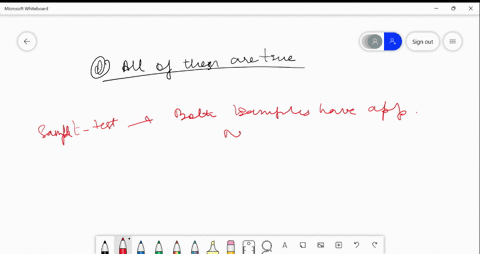 Microsoft Whiteboard
Sign out
d) All of them are true
Sample t-test → Both samples have app.
N